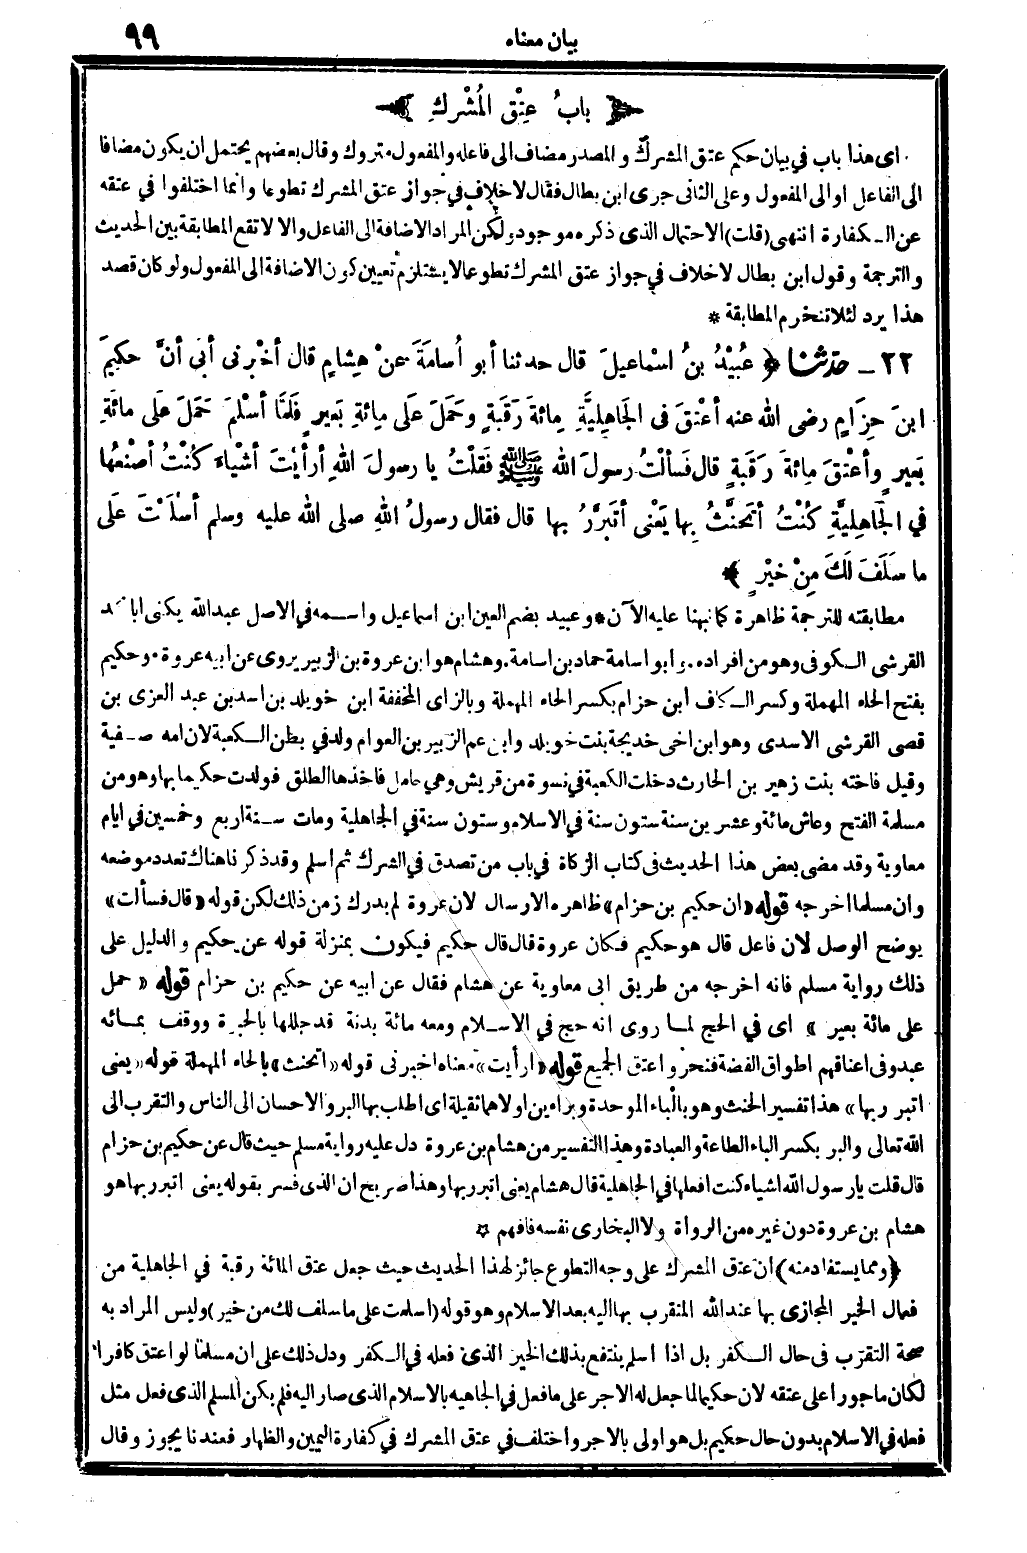 بيان معناه ٩٩
﴿ بابُ عِتْقِ المُشْرِكِ ﴾
اى هذا باب في بيان حكم عتق المشرك والمصدر مضاف الى فاعله والمفعول متروك وقال بعضهم يحتمل ان يكون مضافا
الى الفاعل او الى المفعول وعلى الثانى جرى ابن بطال فقال لا خلاف في جواز عتق المشرك تطوعا وانما اختلفوا في عتقه
عن الـكفارة انتهى (قلت) الاحتمال الذى ذكره موجود ولكن المراد الاضافة الى الفاعل والا لا تقع المطابقة بين الحديث
والترجمة وقول ابن بطال لا خلاف في جواز عتق المشرك تطوعا لا يستلزم تعيين كون الاضافة الى المفعول ولو كان قصد
هذا يرد لئلا تنخرم المطابقة *
٢٢ ـ حدّثنا ﴿ عُبَيْدُ بنُ اسْماعيلَ قال حدثنا أبو أُسامَةَ عنْ هِشامٍ قال أخْبرنى أبى أنَّ حكِيمَ
ابنَ حِزَامٍ رضى الله عنه أعْتَقَ فى الجَاهِليَّةِ مِائةَ رَقَبةٍ وحَمَلَ عَلَى مِائةِ بَعيرٍ فَلمَّا أسْلمَ حَمَلَ عَلى مائةِ
بَعيرٍ وأعْتقَ مِائةَ رَقَبةٍ قال فَسألْتُ رسولَ الله ﷺ فقلْتُ يا رسولَ اللهِ أرأيْتَ أشْياءَ كُنْتُ أصْنَعُها
في الجَاهِليَّةِ كُنْتُ أتَحنَّثُ بِها يَعْنى أتَبرَّرُ بها قال فقال رسولُ اللهِ صلى الله عليه وسلم أسْلَمْتَ عَلَى
ما سَلَفَ لَكَ مِنْ خَيْرٍ ﴾
مطابقته للترجمة ظاهرة كما نبهنا عليه الآن * وعبيد بضم العين ابن اسماعيل واسـمه في الاصل عبد الله يكنى ابا محمد
القرشى الـكوفى وهو من افراده . وابو اسامة حماد بن اسامة . وهشام هو ابن عروة بن الزبير يروى عن ابيه عروة . وحكيم
بفتح الحاء المهملة وكسر الـكاف ابن حزام بكسر الحاء المهملة وبالزاى المخففة ابن خويلد بن اسد بن عبد العزى بن
قصى القرشى الاسدى وهو ابن اخى خديجة بنت خويلد وابن عم الزبير بن العوام ولد في بطن الـكعبة لان امه صـفية
وقيل فاخته بنت زهير بن الحارث دخلت الكعبة في نسوة من قريش وهي حامل فاخذها الطلق فولدت حكيما بها وهو من
مسلمة الفتح وعاش مائة وعشرين سنة ستون سنة في الاسلام وستون سنة في الجاهلية ومات سـنة اربع وخمسين في ايام
معاوية وقد مضى بعض هذا الحديث فى كتاب الزكاة في باب من تصدق في الشرك ثم اسلم وقد ذكرنا هناك تعدد موضعه
وان مسلما اخرجه قوله «ان حكيم بن حزام» ظاهره الارسال لان عروة لم يدرك زمن ذلك لكن قوله «قال فسألت»
يوضح الوصل لان فاعل قال هو حكيم فـكان عروة قال قال حكيم فيكون بمنزلة قوله عن حكيم والدليل على
ذلك رواية مسلم فانه اخرجه من طريق ابى معاوية عن هشام فقال عن ابيه عن حكيم بن حزام قوله « حمل
على مائة بعير » اى في الحج لمـا روى انه حج في الاسـلام ومعه مائة بدنة قد جللها بالحبرة ووقف بمـائه
عبد وفى اعناقهم اطواق الفضة فنحر واعتق الجميع قوله «ارأيت» معناه اخبرنى قوله «اتحنث» بالحاء المهملة قوله «يعنى
اتبرر بها» هذا تفسير الحنث وهو بالباء الموحدة وبراءين اولاهما ثقيلة اى اطلب بها البر والاحسان الى الناس والتقرب الى
الله تعالى والبر بكسر الباء الطاعة والعبادة وهذا التفسير من هشام بن عروة دل عليه رواية مسلم حيث قال عن حكيم بن حزام
قال قلت يا رسول الله اشياء كنت افعلها في الجاهلية قال هشام يعنى اتبرر بها وهذا صريح ان الذى فسر بقوله يعنى اتبرر بها هو
هشام بن عروة دون غيره من الرواة ولا البخارى نفسه فافهم *
﴿ومما يستفاد منه﴾ ان عتق المشرك على وجه التطوع جائز لهذا الحديث حيث جعل عتق المائة رقبة في الجاهلية من
فعال الخير المجازى بها عند الله المتقرب بها اليه بعد الاسلام وهو قوله (اسلمت على ما سلف لك من خير) وليس المراد به
صحة التقرب فى حال الـكفر بل اذا اسلم ينتفع بذلك الخير الذى فعله في الـكفر ودل ذلك على ان مسلما لو اعتق كافرا
لكان ماجورا على عتقه لان حكيما لما جعل له الاجر على ما فعل في الجاهيه بالاسلام الذى صار اليه فلم يكن المسلم الذى فعل مثل
فعله في الاسلام بدون حال حكيم بل هو اولى بالاجر واختلف في عتق المشرك في كفارة اليمين والظهار فعندنا يجوز وقال